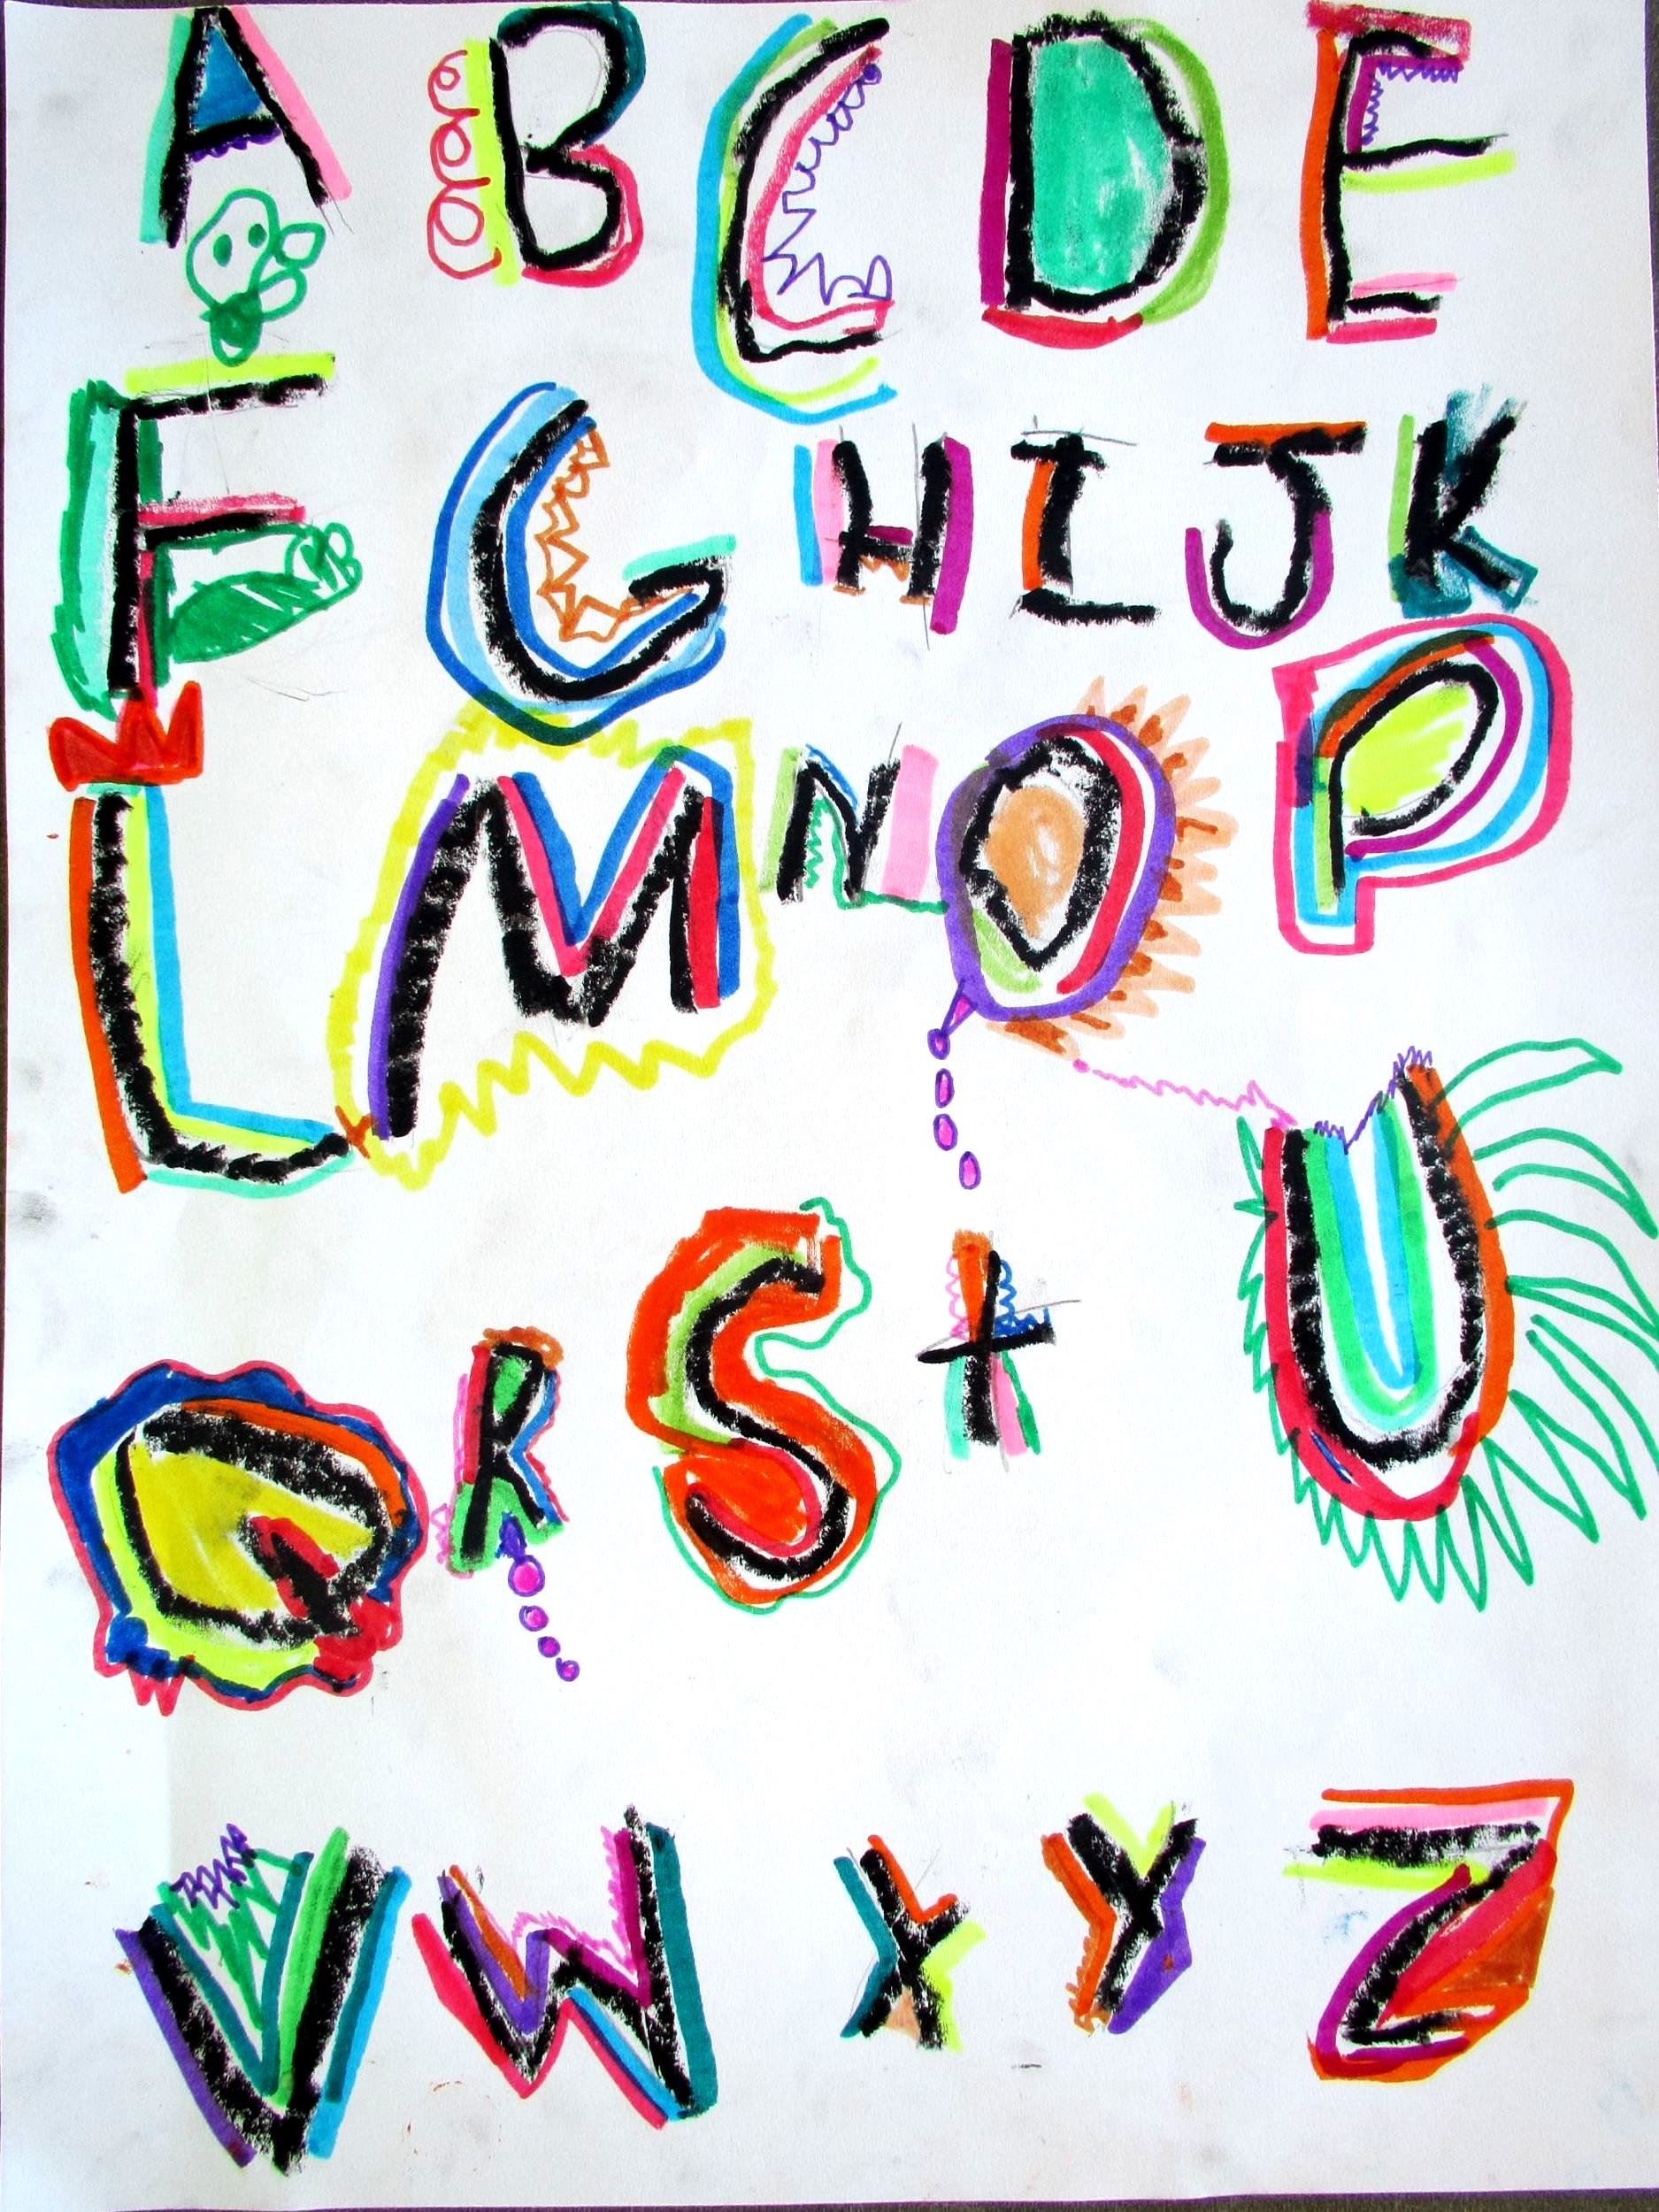 A B C D E
F G H I J K
L M N O P
Q R S t U
V W X Y Z